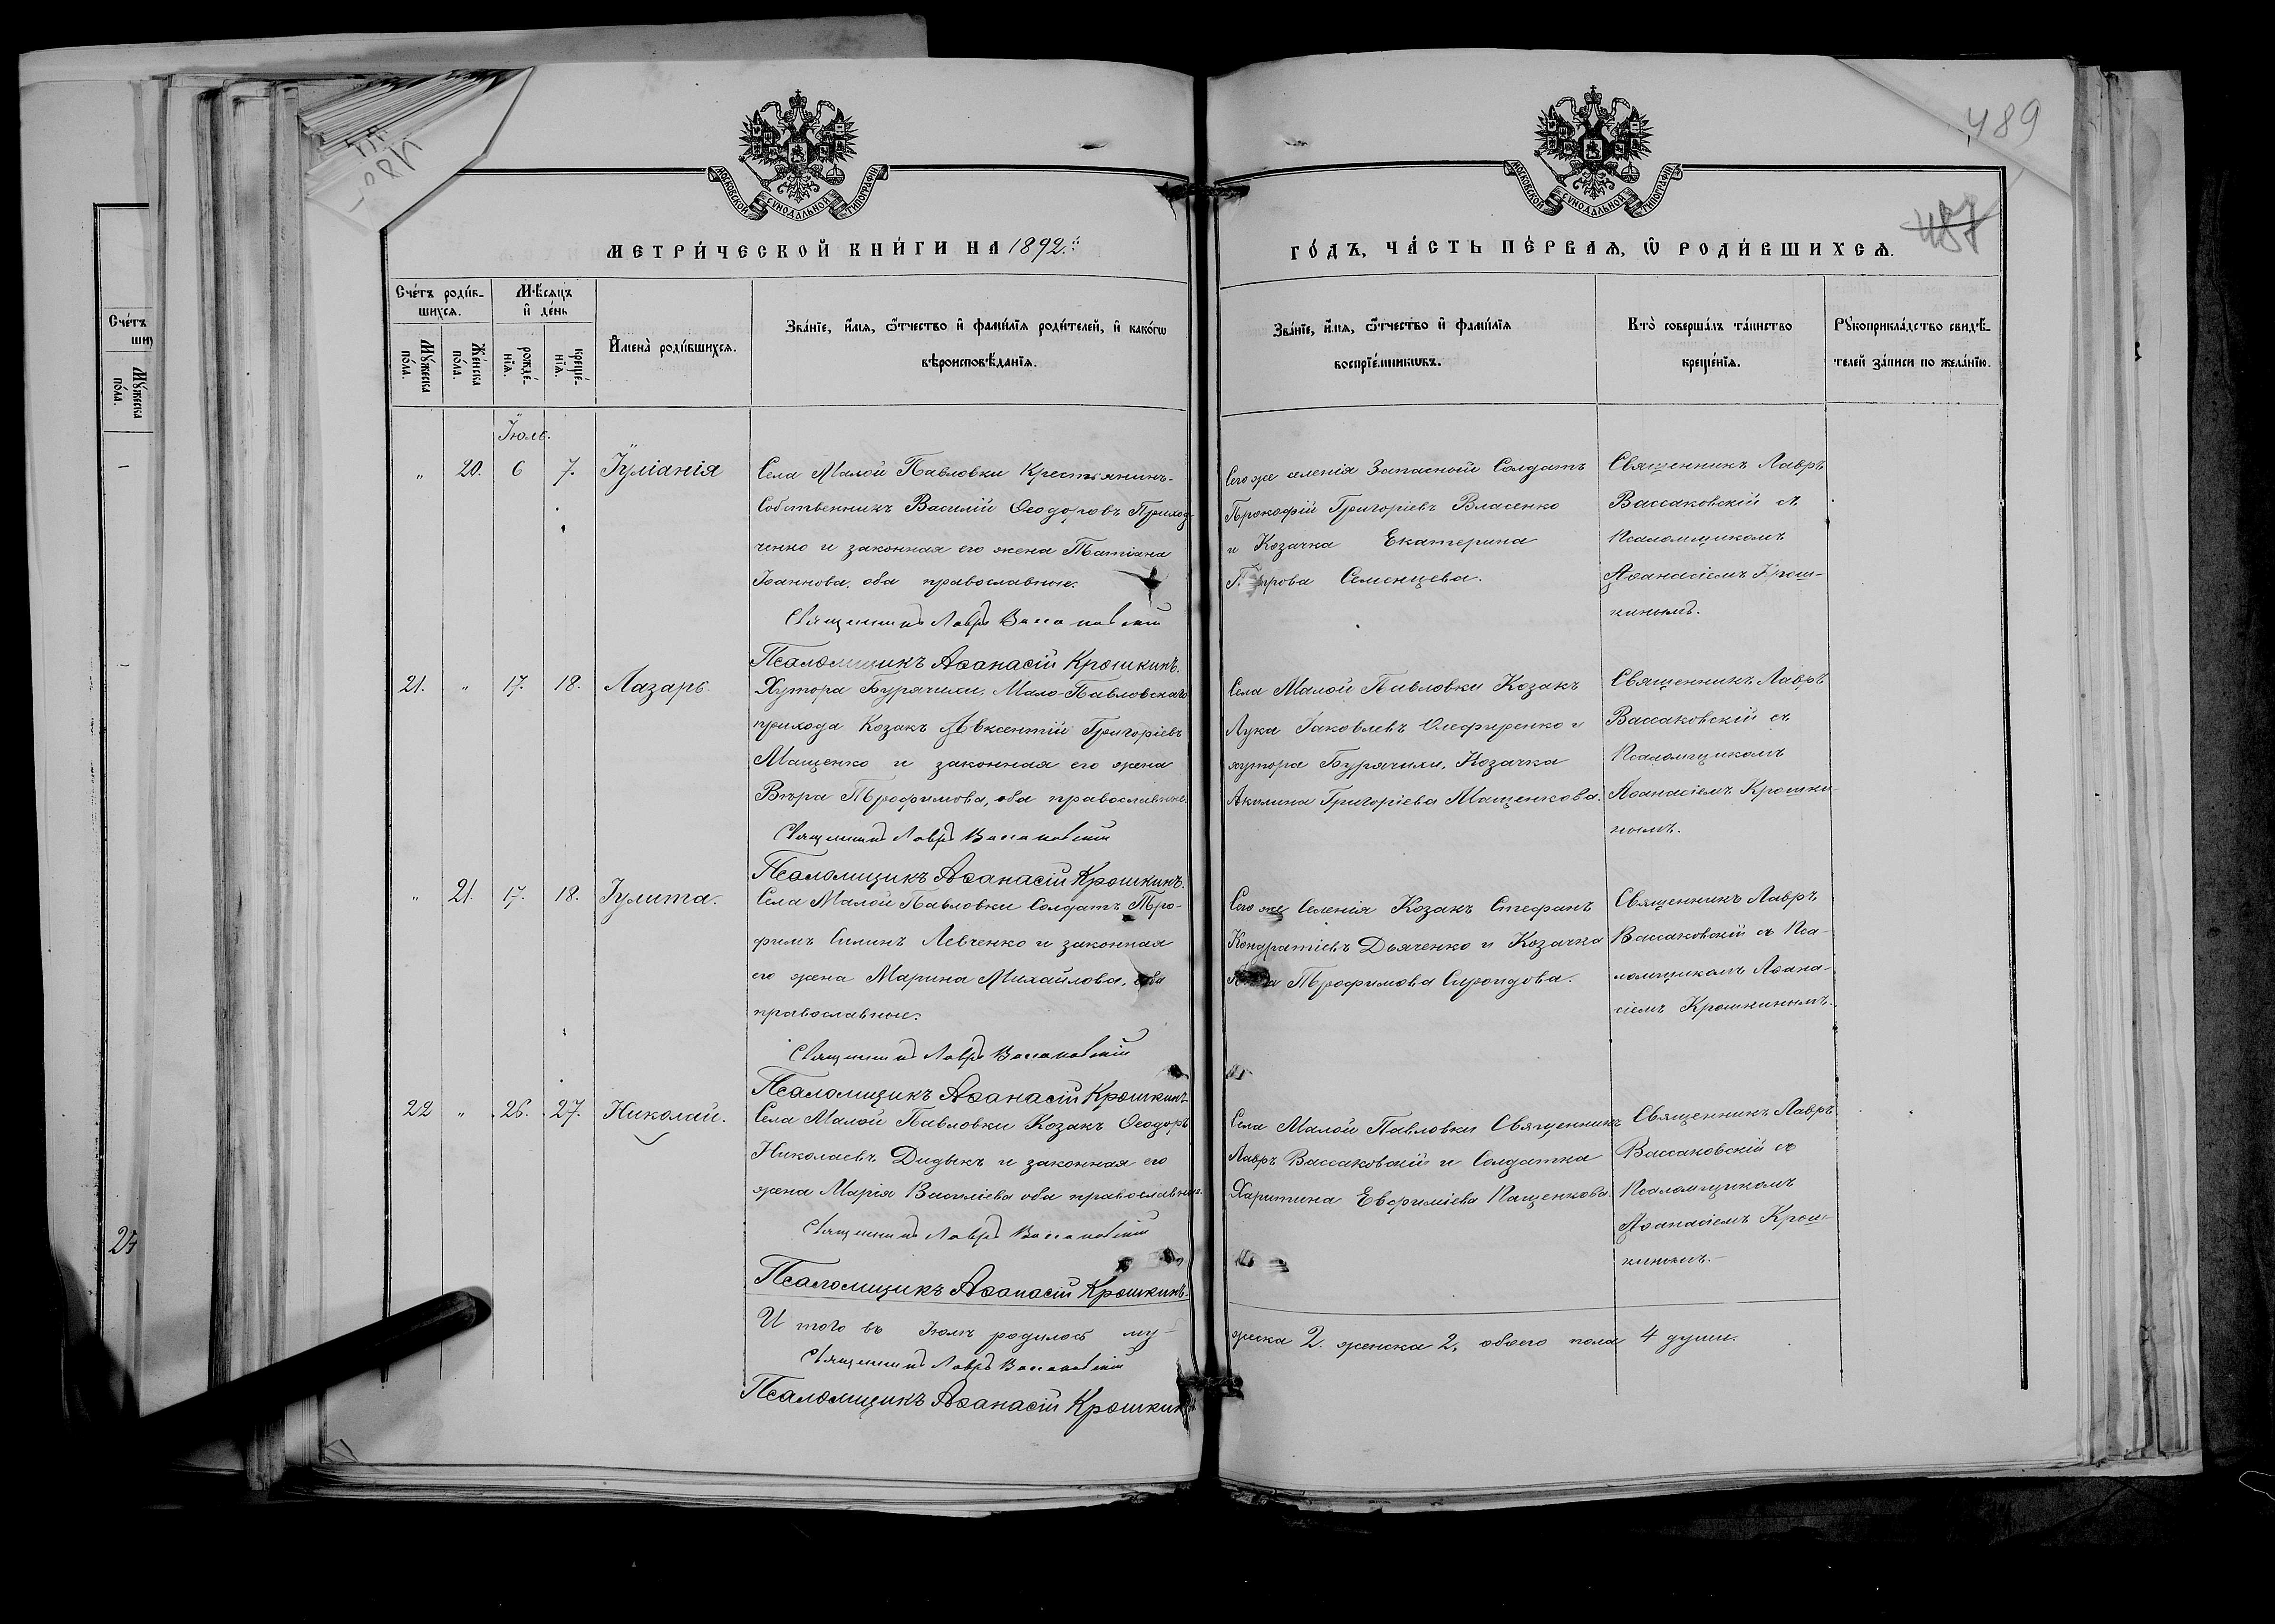 489
487
180
МОСКОВСКОЙ СУНОДАЛЬНОЙ ТИПОГРАФІИ
МОСКОВСКОЙ СУНОДАЛЬНОЙ ТИПОГРАФІИ
МЕТРИ́ЧЕСКОЙ КНИ́ГИ НА 1892й
ГО́ДЪ, ЧА́СТЬ ПЕ́РВАѦ, Ѡ҃ РОДИ́ВШИХСѦ.
Сче́тъ роди́в-
шихсѧ.
Мꙋ́жеска
по́ла.
Же́нска
по́ла.
Мѣ́сѧцъ
и҆ де́нь
рожде́-
нїѧ.
креще́-
нїѧ.
И҆мена̀ роди́вшихсѧ.
Зва́нїе, и҆́мѧ, ѻ҆́тчество и҆ фами́лїѧ роди́телей, и҆ како́гѡ
вѣроисповѣ́данїѧ.
Зва́нїе, и҆́мѧ, ѻ҆́тчество и҆ фами́лїѧ
воспрїе́мникѡвъ.
Кто̀ соверша́лъ та́инство
креще́нїѧ.
Рꙋкоприкла́дство свидѣ́-
телей за́писи по жела́нїю.
Сче́тъ
Мꙋ́жеска
по́ла.
24
Іюль.
" 20. 6 7. Іуліанія
Села Малой Павловки Крестьянинъ-
Собственникъ Василій Ѳеодоровъ Приход-
ченко и законная его жена Татіана
Іоаннова, оба православные.
Священникъ Лавръ Вассаковскій
Псаломщикъ Аѳанасій Крошкинъ.
Сего же селенія Запасный Солдатъ
Прокофій Григоріевъ Власенко
и Козачка Екатерина
Семенцева.
Священникъ Лавръ
Вассаковскій съ
Псаломщикомъ
Аѳанасіемъ Крош-
кинымъ.
21. " 17. 18. Лазарь.
Хутора Бурячихи, Мало-Павловскаго
прихода Козакъ Авксентій Григоріевъ
Мащенко и законная его жена
Вѣра Трофимова, оба православные.
Священникъ Лавръ Вассаковскій
Псаломщикъ Аѳанасій Крошкинъ.
Села Малой Павловки Козакъ
Лука Іаковлевъ Олефиренко и
хутора Бурячихи, Козачка
Акилина Григоріева Мащенкова.
Священникъ Лавръ
Вассаковскій съ
Псаломщикомъ
Аѳанасіемъ Крошки-
нымъ.
" 21. 17. 18. Іулита.
Села Малой Павловки Солдатъ Тро-
фимъ Силинъ Левченко и законная
его жена Марина Михайлова, оба
православные.
Священникъ Лавръ Вассаковскій
Псаломщикъ Аѳанасій Крошкинъ
Сего же Селенія Козакъ Стефанъ
Кондратіевъ Дьяченко и Козачка
Трофимова
Священникъ Лавръ
Вассаковскій съ Пса-
ломщикомъ Аѳана-
сіемъ Крошкинымъ.
22 " 26. 27. Николай.
Села Малой Павловки Козакъ Ѳеодоръ
Николаевъ Дидыкъ и законная его
жена Марія Василіева оба православные.
Священникъ Лавръ Вассаковскій
Псаломщикъ Аѳанасій Крошкинъ.
Села Малой Павловки Священникъ
Лавръ Вассаковскій и Солдатка
Харитина Евфиміева Пащенкова.
Священникъ Лавръ
Вассаковскій съ
Псаломщикомъ
Аѳанасіемъ Крош-
кинымъ.
И того въ Іюлѣ родилось му-
жеска 2. женска 2, обоего пола 4 души.
Священникъ Лавръ Вассаковскій
Псаломщикъ Аѳанасій Крошкинъ